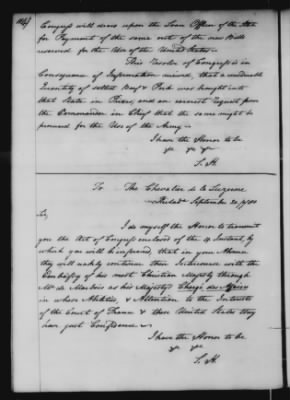 Congress will draw upon the Loan Officer of the State
for Payment of the same out of the new Bills
reserved for the Use of the United States.
This Resolve of Congress is in
Consequence of Information received, that a considerable
Quantity of salted Beef & Pork was brought into
that State in Prizes, and an earnest Request from
the Commander in Chief that the same might be
procured for the Use of the Army.
I have the Honor to be
&c &c &c
S. H.
To The Chevalier de la Luzerne
Philada September 20, 1780
Sir,
I do myself the Honor to transmit
you the Act of Congress enclosed of the Instant, by
which you will be informed, that in your Absence
they will continue their Intercourse with the
Embassy of his most Christian Majesty through
Mr de Marbois as his Majesty's Chargé des Affaires
in whose Abilities, & Attention to the Interests
of the Court of France & these United States they
have just Confidence
I have the Honor to be
&c &c
S. H.